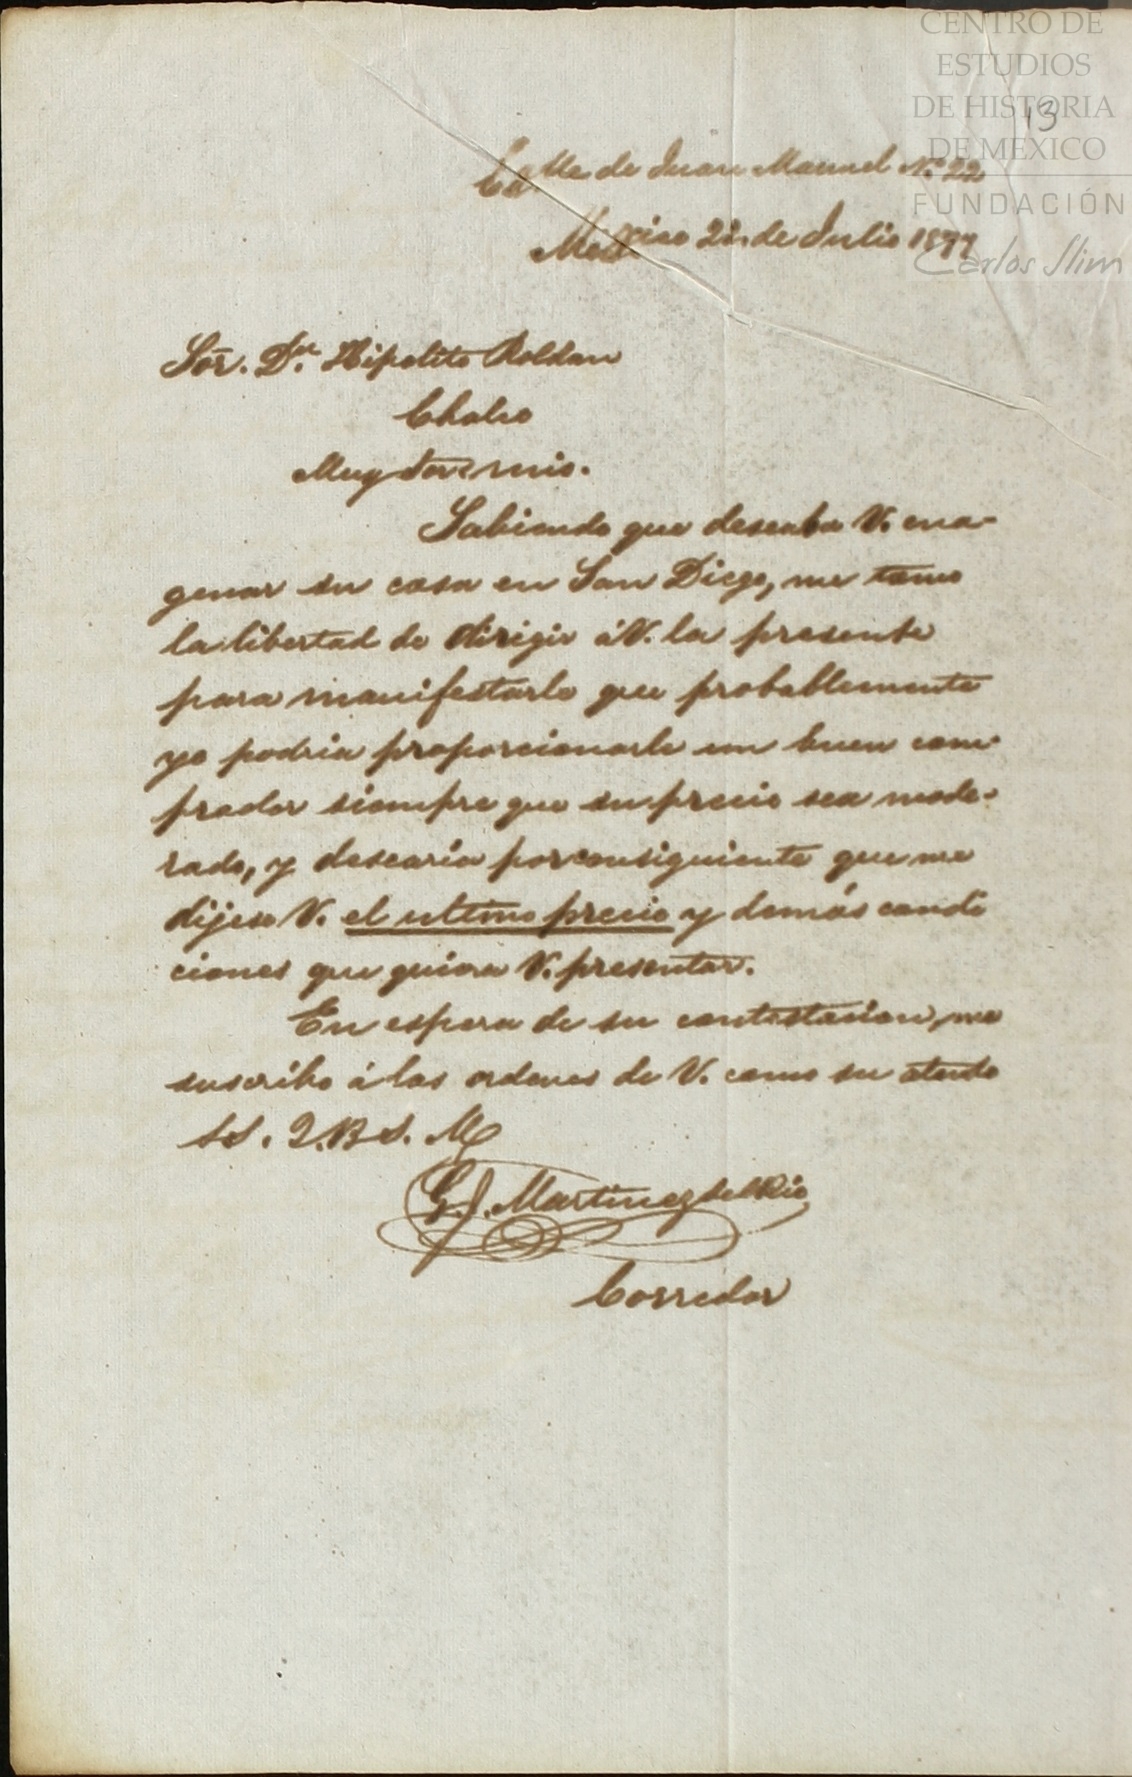 CENTRO DE
ESTUDIOS
DE HISTORIA
DE MEXICO
FUNDACIÓN
Carlos Slim
13
Calle de Juan Manuel No. 22
Mexico 21 de Julio 1877
Sor. Dn. Hipolito Roldan
Chalco
Muy Sor mio.
Sabiendo que deseaba V. ena-
genar su casa en San Diego, me tomo
la libertad de dirigir á V. la presente
para manifestarle que probablemente
yo podria proporcionarle un buen com-
prador siempre que su precio sea mode-
rado, y desearia por consiguiente que me
dijese V. el ultimo precio y demás condi
ciones que quiera V. presentar.
En espera de su contestacion, me
suscribo á las ordenes de V. como su atento
s.S. Q.B.S.M
G. J. Martinez del Rio
Corredor